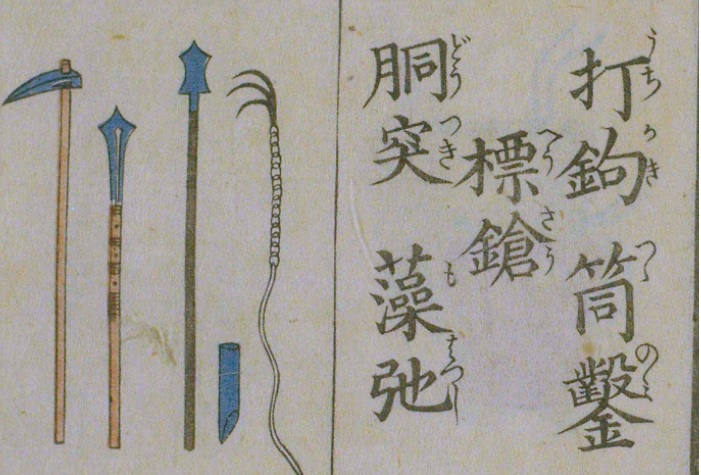 打鉤 筒鑿
うちかき つゝのミ
標鎗
へうさう
胴突 藻弛
どうつき もはつし